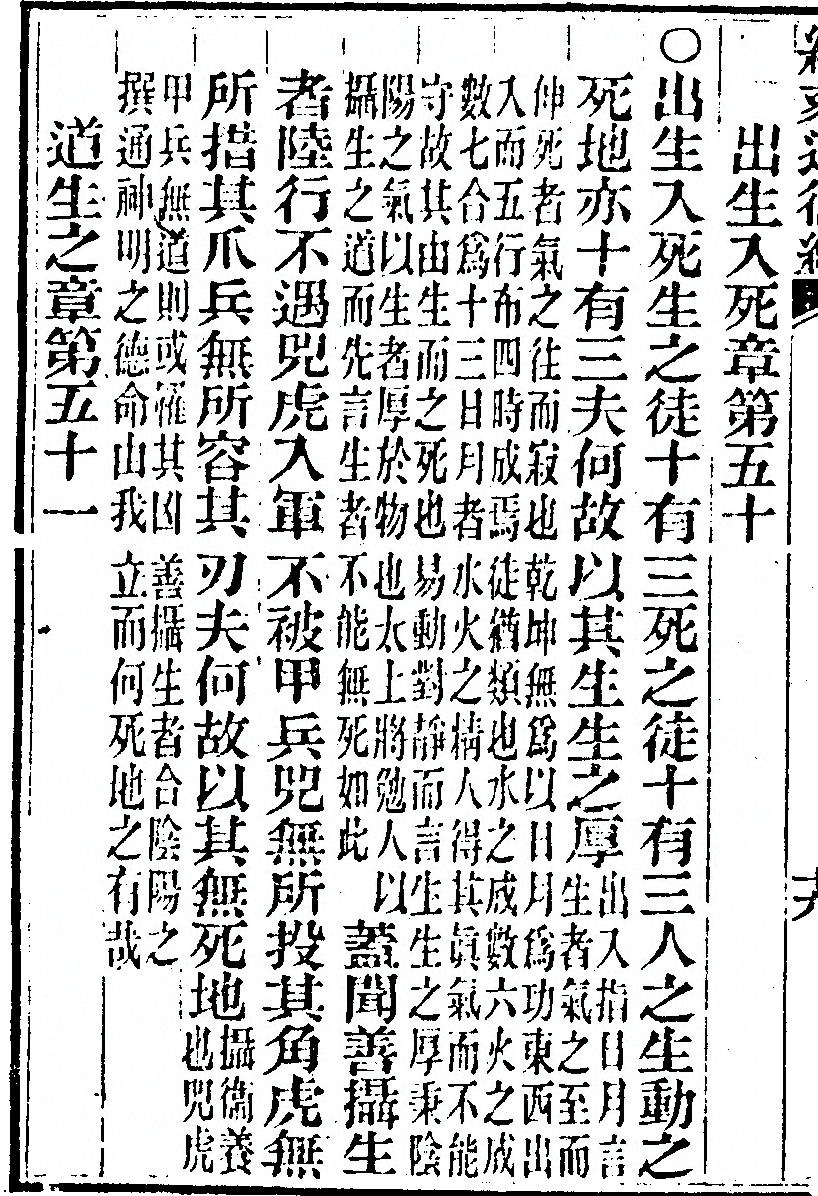 出生入死章第五十
〇出生入死生之徒十有三死之徒十有三人之生動之
死地亦十有三夫何故以其生生之厚
出入指日月言
生者氣之至而
伸死者氣之往而寂也乾坤無爲以日月爲功東西出
入而五行布四時成焉徒猶類也水之成數六火之成
數七合爲十三日月者水火之精人得其眞氣而不能
守故其由生而之死也易動對靜而言生生之厚秉陰
陽之氣以生者厚於物也太上將勉人以
攝生之道而先言生者不能無死如此
蓋聞善攝生
者陸行不遇兕虎入軍不被甲兵兕無所投其角虎無
所措其爪兵無所容其刃夫何故以其無死地
攝衞養
也兕虎
甲兵無道則或罹其凶善攝生者合陰陽之
撰通神明之德命由我立而何死地之有哉
道生之章第五十一